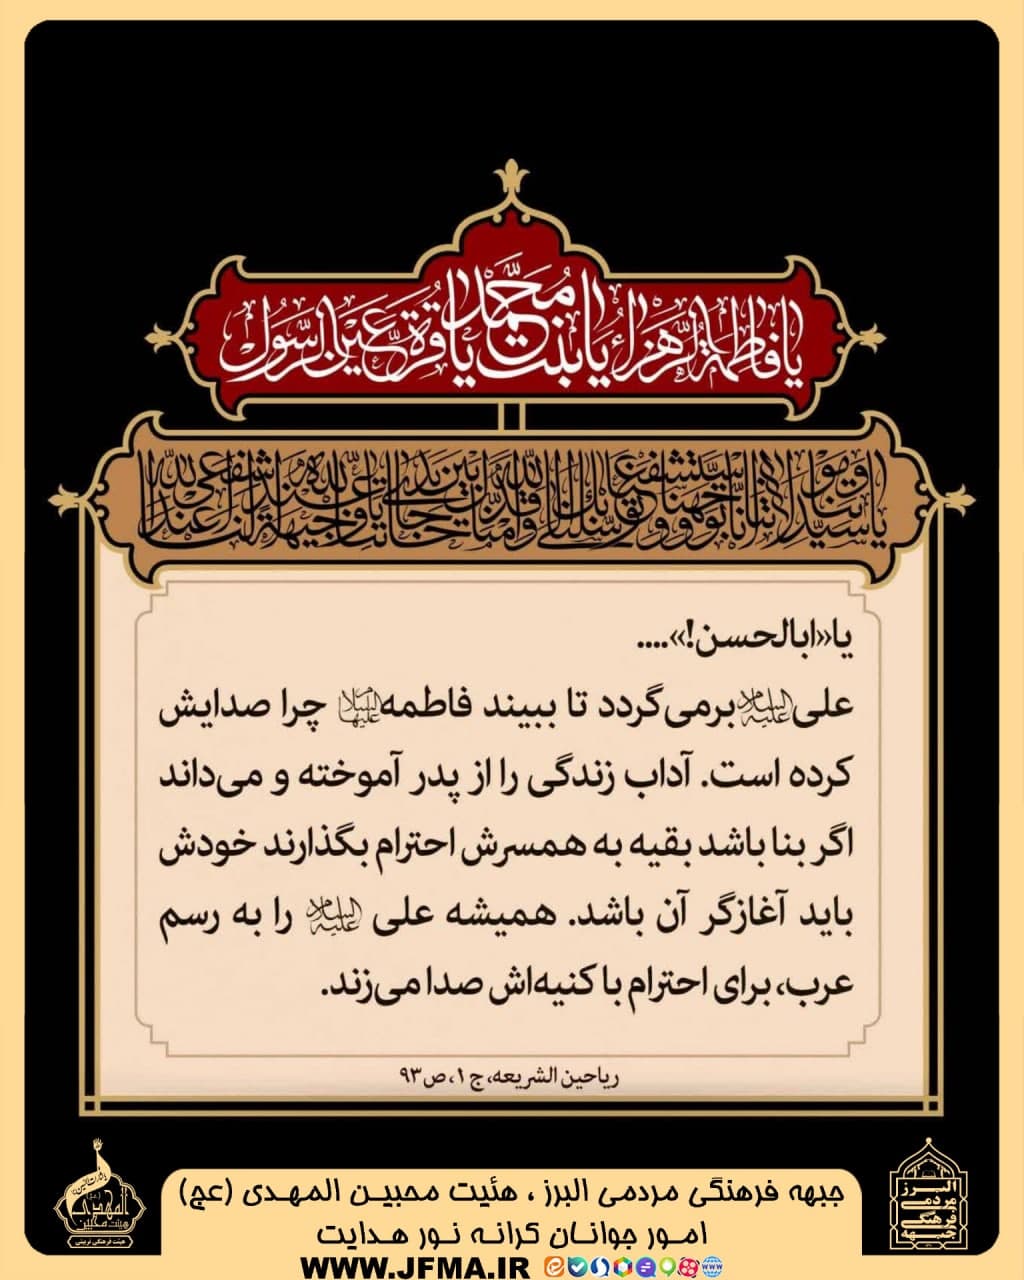 یا فاطمة الزهراء یا بنت محمد یا قرة عین الرسول
یا سیدتنا و مولاتنا انا توجهنا و استشفعنا و توسلنا بک الی الله و قدمناک بین یدی حاجاتنا یا وجیهة عند الله اشفعی لنا عند الله
یا «ابالحسن!»....
علی علیه‌السلام برمی‌گردد تا ببیند فاطمه علیهاالسلام چرا صدایش
کرده است. آداب زندگی را از پدر آموخته و می‌داند
اگر بنا باشد بقیه به همسرش احترام بگذارند خودش
باید آغازگر آن باشد. همیشه علی علیه‌السلام را به رسم
عرب، برای احترام با کنیه‌اش صدا می‌زند.
ریاحین الشریعه، ج ۱، ص ۹۳
جبهه فرهنگی مردمی البرز ، هئیت محبین المهدی (عج)
امور جوانان کرانه نور هدایت
WWW.JFMA.IR
المهدی
هیئت محبین
هیئت فرهنگی تربیتی
البرز
مردمی
فرهنگی
جبهه